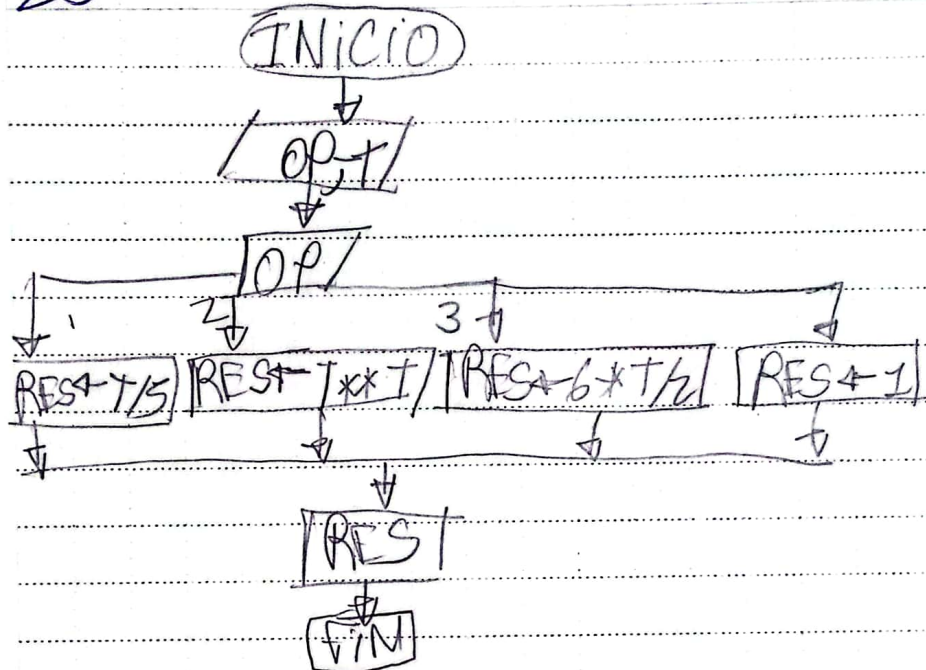 INiCiO
OP, T
OP
1 2 3
RES←T/5 RES←T**T RES←6*T/2 RES←1
RES
FiN